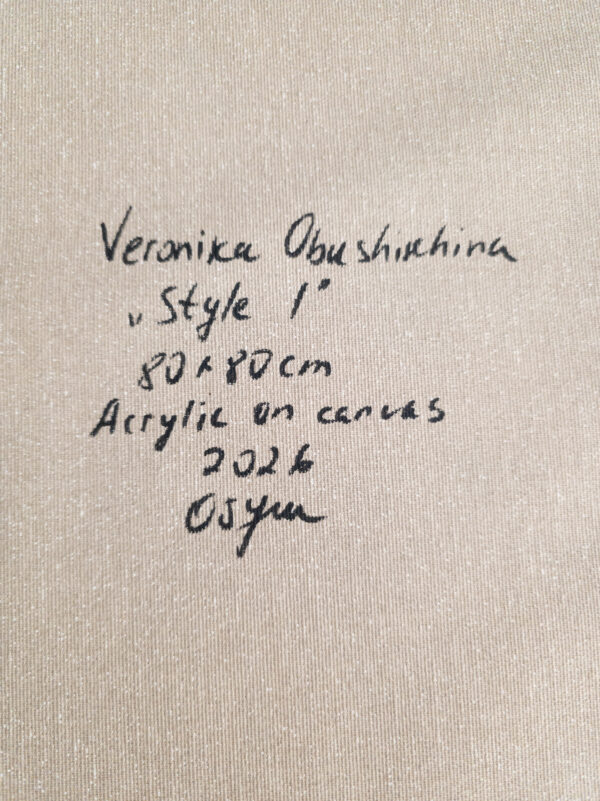 Veronika Obushikhina
„Style 1”
80x80cm
Acrylic on canvas
2026